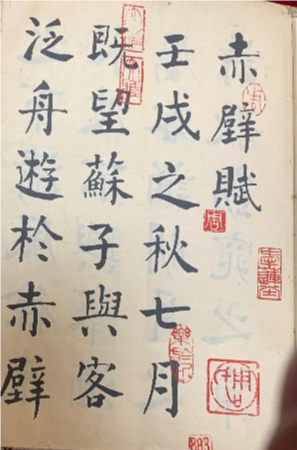 赤壁賦
壬戌之秋七月
既望蘇子與客
泛舟遊於赤壁